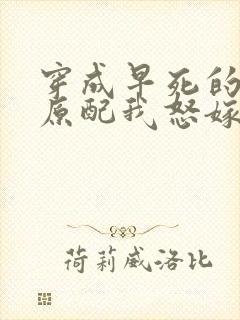 穿成早死的
原配我怒嫁
荷莉威洛比